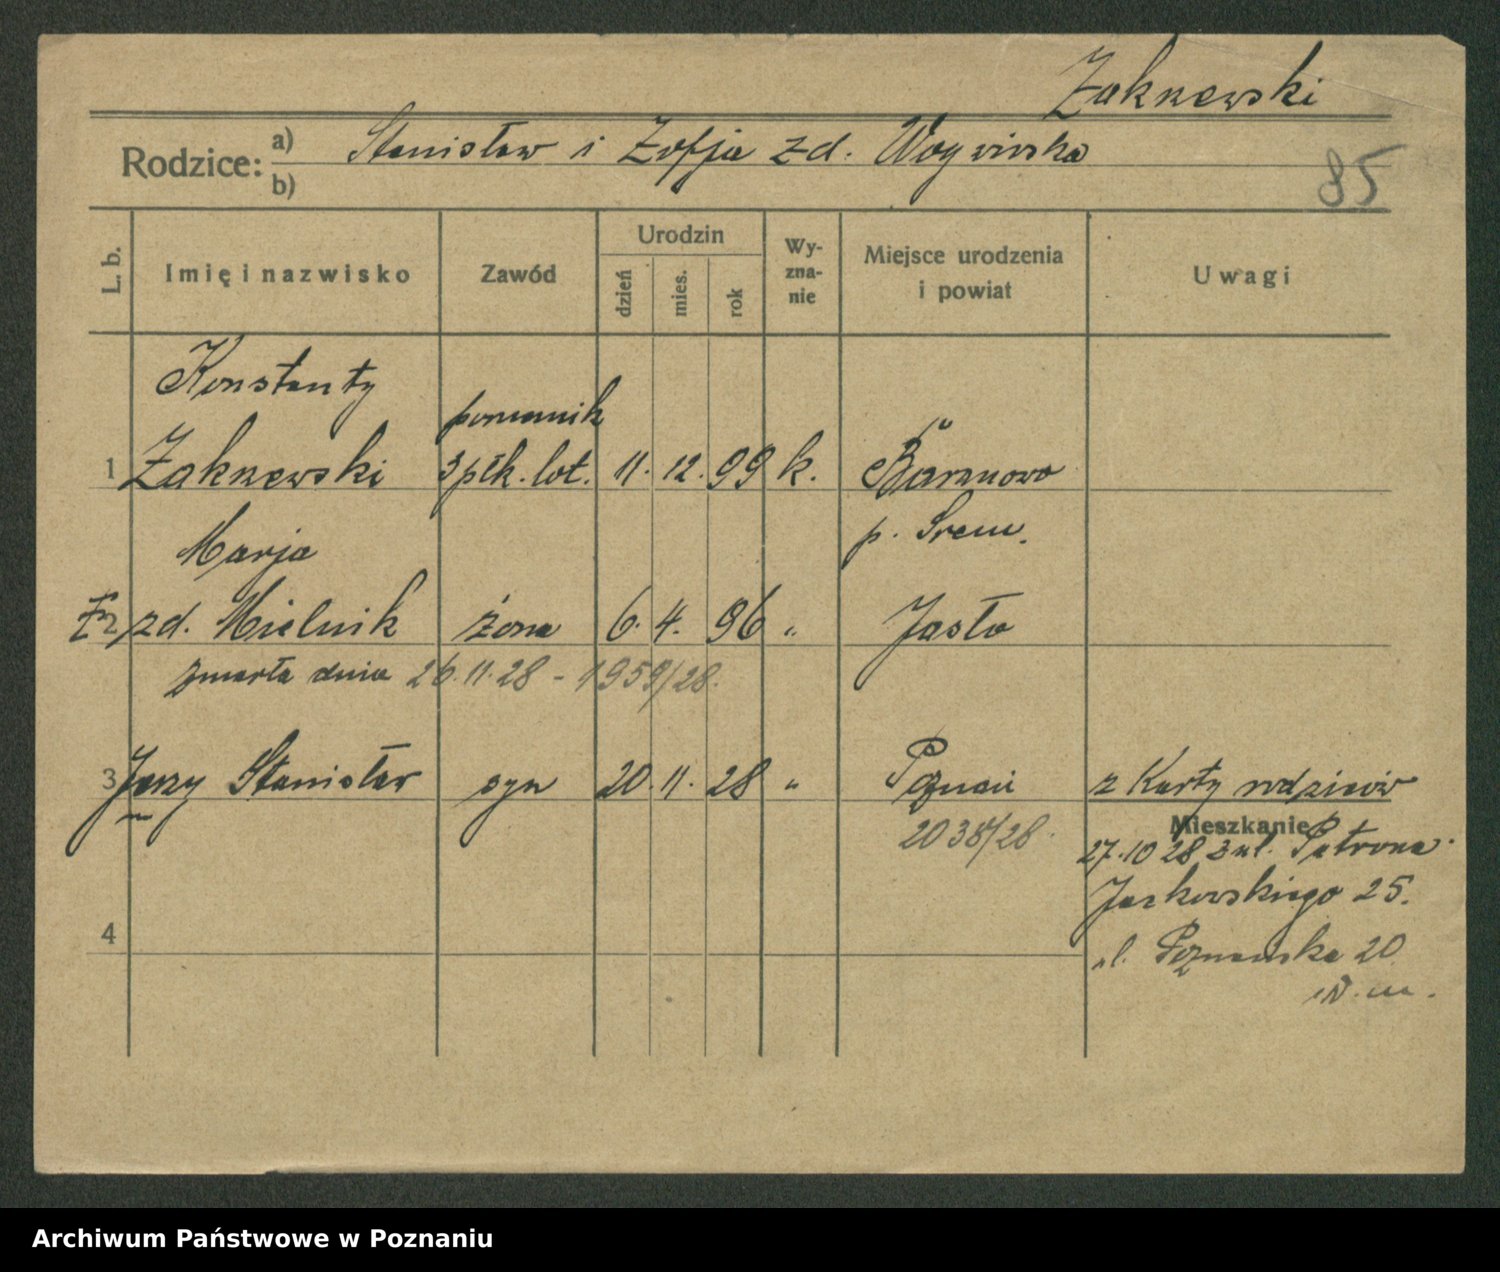 Żaknewski
Rodzice: a) Stanisław i Zofja zd.
b)
85
L. b.
Imię i nazwisko
Zawód
Urodzin
dzień
mies.
rok
Wy-
zna-
nie
Miejsce urodzenia
i powiat
Uwagi
Konstanty
1 Żaknewski 3 płk. lot. 11. 12. 99 k.
p. Śrem.
Marja
zd. Mielnik żona 6. 4. 96 " Jasło
zmarła dnia 26.11.28 - 1959/28.
3 Jerzy Stanisław syn 20. 11. 28 " Poznań z Karty rodziców
2038/28.
Mieszkanie
27.10 28 ul. Patrona
Jackowskiego 25.
4
ul. Poznańska 20
Archiwum Państwowe w Poznaniu